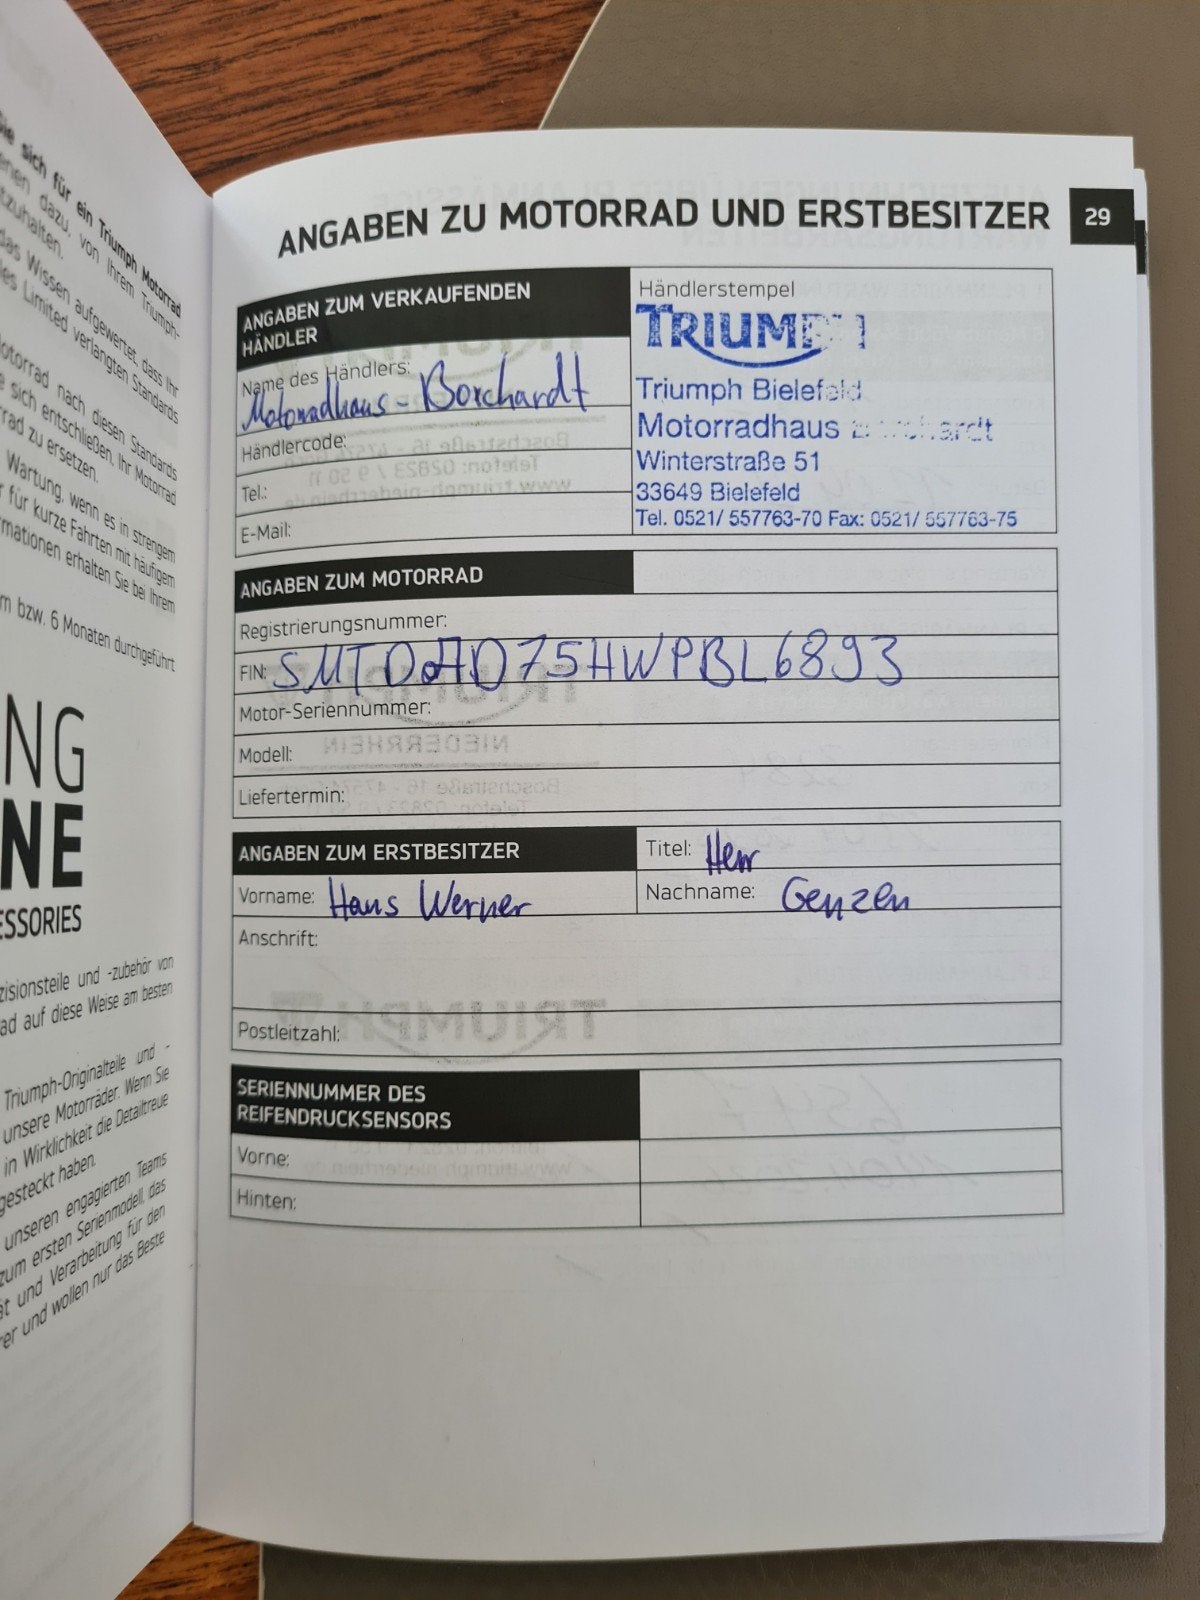 Sie sich für ein Triumph Motorrad
enen dazu, von Ihrem Triumph-
tzuhalten.
das Wissen aufgewertet, dass Ihr
les Limited verlangten Standards
otorrad nach diesen Standards
e sich entschließen, Ihr Motorrad
rad zu ersetzen.
Wartung, wenn es in strengem
r für kurze Fahrten mit häufigem
rmationen erhalten Sie bei Ihrem
m bzw. 6 Monaten durchgeführt
NG
NE
ESSORIES
zisionsteile und -zubehör von
ad auf diese Weise am besten
Triumph-Originalteile und -
unsere Motorräder. Wenn Sie
in Wirklichkeit die Detailtreue
gesteckt haben.
unseren engagierten Teams
zum ersten Serienmodell, das
ät und Verarbeitung für den
rer und wollen nur das Beste
ANGABEN ZU MOTORRAD UND ERSTBESITZER 29
ANGABEN ZUM VERKAUFENDEN
HÄNDLER
Name des Händlers:
Motorradhaus - Borchardt
Händlercode:
Tel.:
E-Mail:
Händlerstempel
TRIUMPH
Triumph Bielefeld
Motorradhaus Borchardt
Winterstraße 51
33649 Bielefeld
Tel. 0521/ 557763-70 Fax: 0521/ 557763-75
ANGABEN ZUM MOTORRAD
Registrierungsnummer:
FIN: SMTD0AD75HWPBL6893
Motor-Seriennummer:
Modell:
Liefertermin:
ANGABEN ZUM ERSTBESITZER
Titel: Herr
Vorname: Hans Werner
Nachname: Genzen
Anschrift:
Postleitzahl:
SERIENNUMMER DES
REIFENDRUCKSENSORS
Vorne:
Hinten: